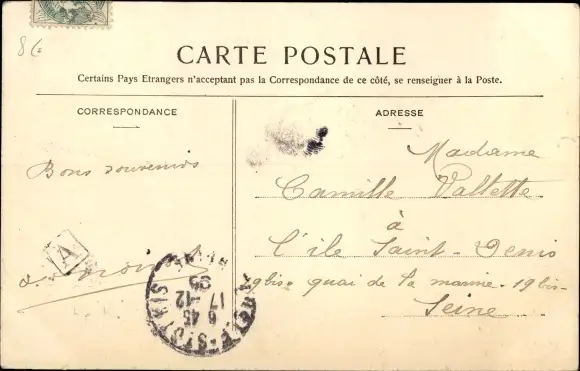 8€
CARTE POSTALE
Certains Pays Etrangers n'acceptant pas la Correspondance de ce côté, se renseigner à la Poste.
CORRESPONDANCE
ADRESSE
Bons souvenirs
A
6 45
17 -12
Madame
Camille Vallette
à
l'ile Saint-Denis
quai de la marine - 19 bis -
Seine